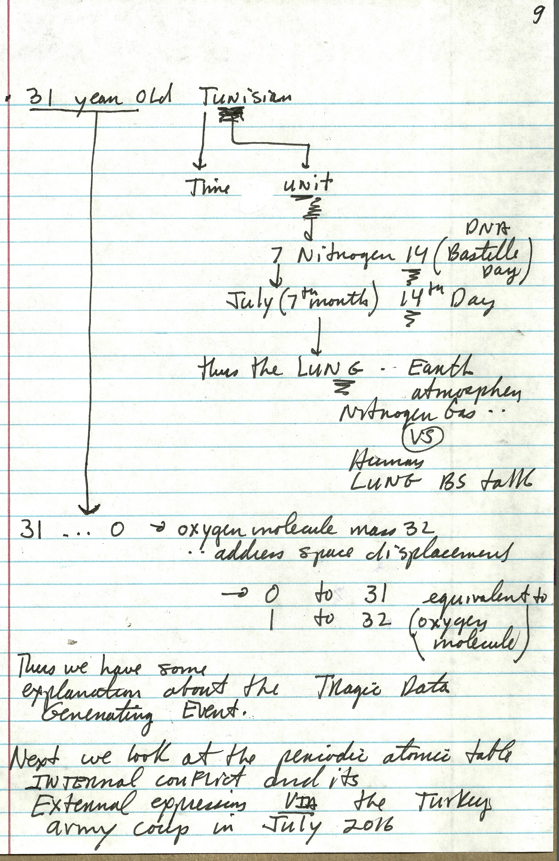 9
31 year old Tunisian
Time unit
DNA
7 Nitrogen 14 (Bastille Day)
July (7th month) 14th Day
thus the LUNG .. Earth
atmosphere
Nitrogen Gas ..
VS
Human
LUNG BS talk
31 ... 0 → oxygen molecule mass 32
.. address space displacement
→ 0 to 31 equivalent to
1 to 32 (oxygen molecule)
Thus we have some
explanation about the Tragic Data
Generating Event.
Next we look at the periodic atomic table
INTERNAL conflict and its
External expression VIA the Turkey
army coup in July 2016